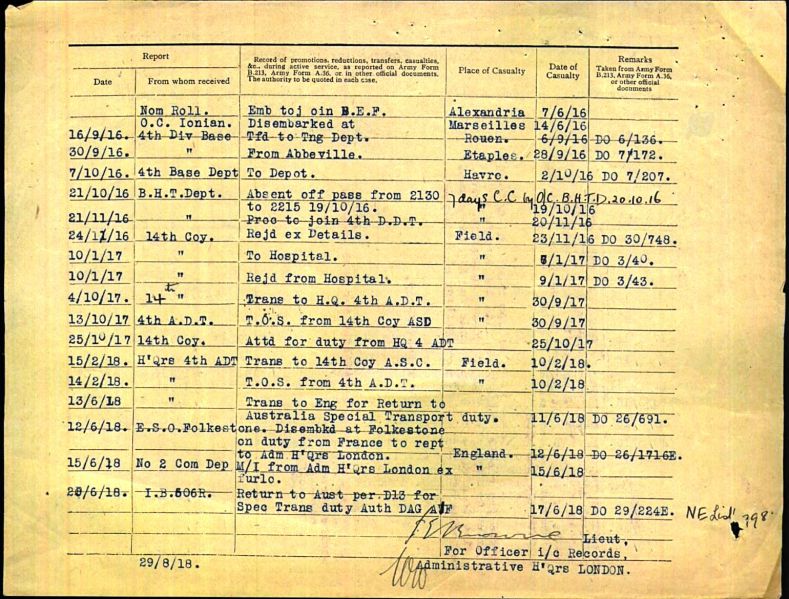 Report
Record of promotions, reductions, transfers, casualties, &c., during active service, as reported on Army Form B.213, Army Form A.36, or in other official documents. The authority to be quoted in each case.
Place of Casualty
Date of Casualty
Remarks
Taken from Army Form B.213, Army Form A.36, or other official documents
Date From whom received
Nom Roll. Emb toj oin B.E.F. Alexandria 7/6/16
O.C. Ionian. Disembarked at Marseilles 14/6/16
16/9/16. 4th Div Base Tfd to Tng Dept. Rouen. 6/9/16 DO 6/136.
30/9/16. " From Abbeville. Etaples. 28/9/16 DO 7/172.
7/10/16. 4th Base Dept To Depot. Havre. 2/10/16 DO 7/207.
21/10/16 B.H.T.Dept. Absent off pass from 2130 7 days C.C by O/C. B.H.T.D. 20.10.16
to 2215 19/10/16. " 19/10/16
21/11/16 " Proc to join 4th D.D.T. " 20/11/16
24/11/16 14th Coy. Rejd ex Details. Field. 23/11/16 DO 30/748.
10/1/17 " To Hospital. " /1/17 DO 3/40.
10/1/17 " Rejd from Hospital. " 9/1/17 DO 3/43.
4/10/17. 14th " Trans to H.Q. 4th A.D.T. " 30/9/17
13/10/17 4th A.D.T. T.O.S. from 14th Coy ASD " 30/9/17
25/10/17 14th Coy. Attd for duty from HQ 4 ADT 25/10/17
15/2/18. H'Qrs 4th ADT Trans to 14th Coy A.S.C. Field. 10/2/18.
14/2/18. " T.O.S. from 4th A.D.T. " 10/2/18
13/6/18 Trans to Eng for Return to
Australia Special Transport duty. 11/6/18 DO 26/691.
12/6/18. E.S.O.Folkestone. Disembkd at Folkestone
on duty from France to rept
to Adm H'Qrs London. England. 12/6/18 DO 26/1716E.
15/6/18 No 2 Com Dep M/I from Adm H'Qrs London ex " 15/6/18
furlo.
20/6/18. I.B.506R. Return to Aust per D13 for
Spec Trans duty Auth DAG AIF 17/6/18 DO 29/224E. NE List 798
Lieut.
For Officer i/c Records,
29/8/18. Administrative H'Qrs LONDON.